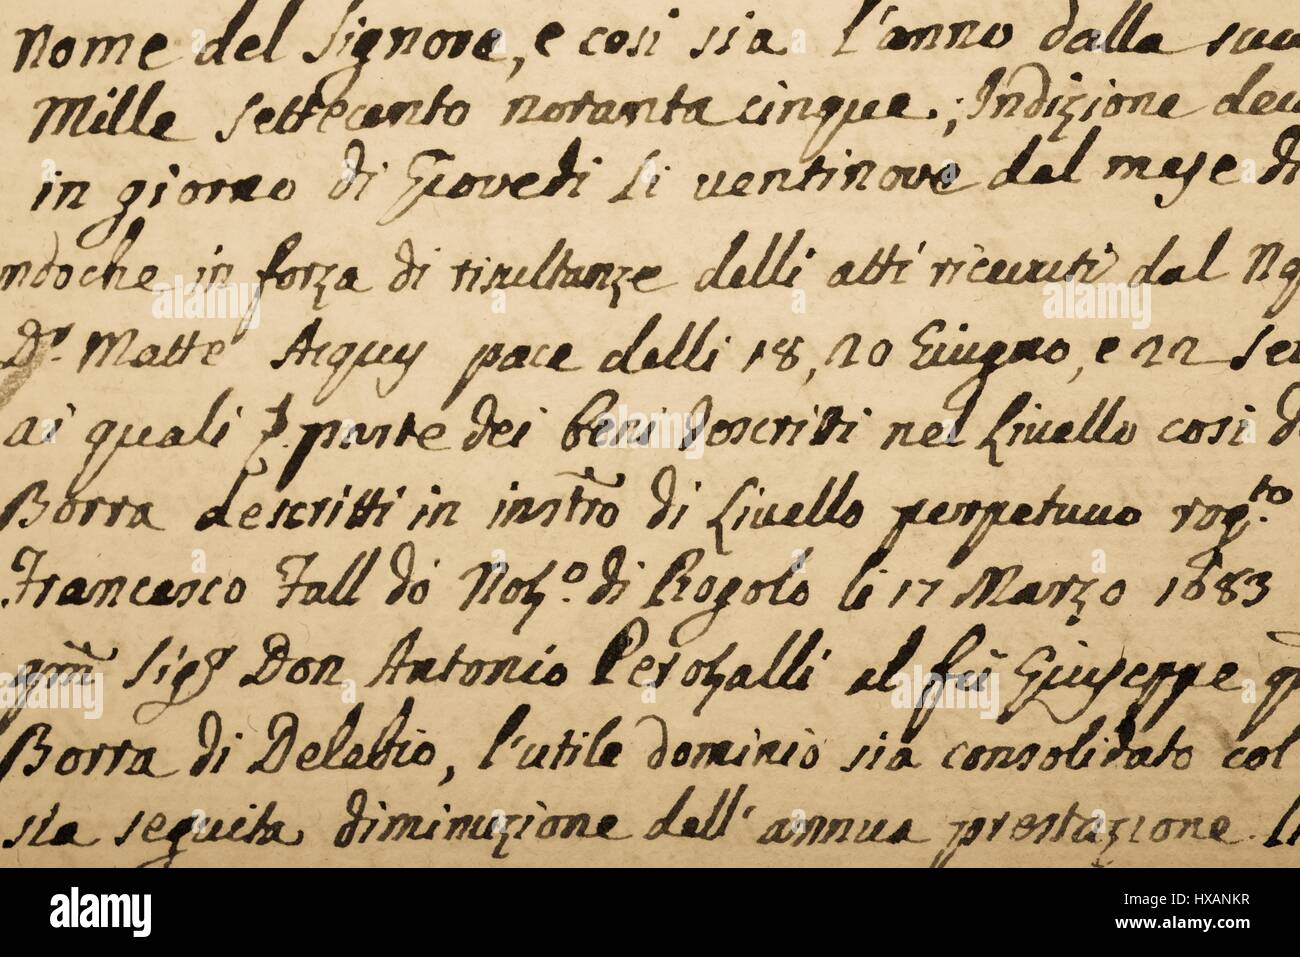 Nome del Signore, e così sia l'anno dalla sua
Mille settecento novanta cinque; Indizione dec
in giorno di Giovedi li ventinove del mese di
ndoche in forza di risultanze delli atti ricevuti dal
Dr. Matte Acquy pace delli 18, 20 Giugno, e 22 set
ai quali p. parte dei beni descritti nel Livello cosi d
Borra descritti in instro di Livello perpetuo rog.to
Francesco Falldò Noro. di Rogolo li 17 Marzo 1683
qm Sigr Don Antonio Peregalli al fù Giuseppe q
Borra di Delebio, l'utile dominio sia consolidato col
sia seguita diminuzione dell'annua prestazione. li
alamy
Image ID: HXANKR
www.alamy.com